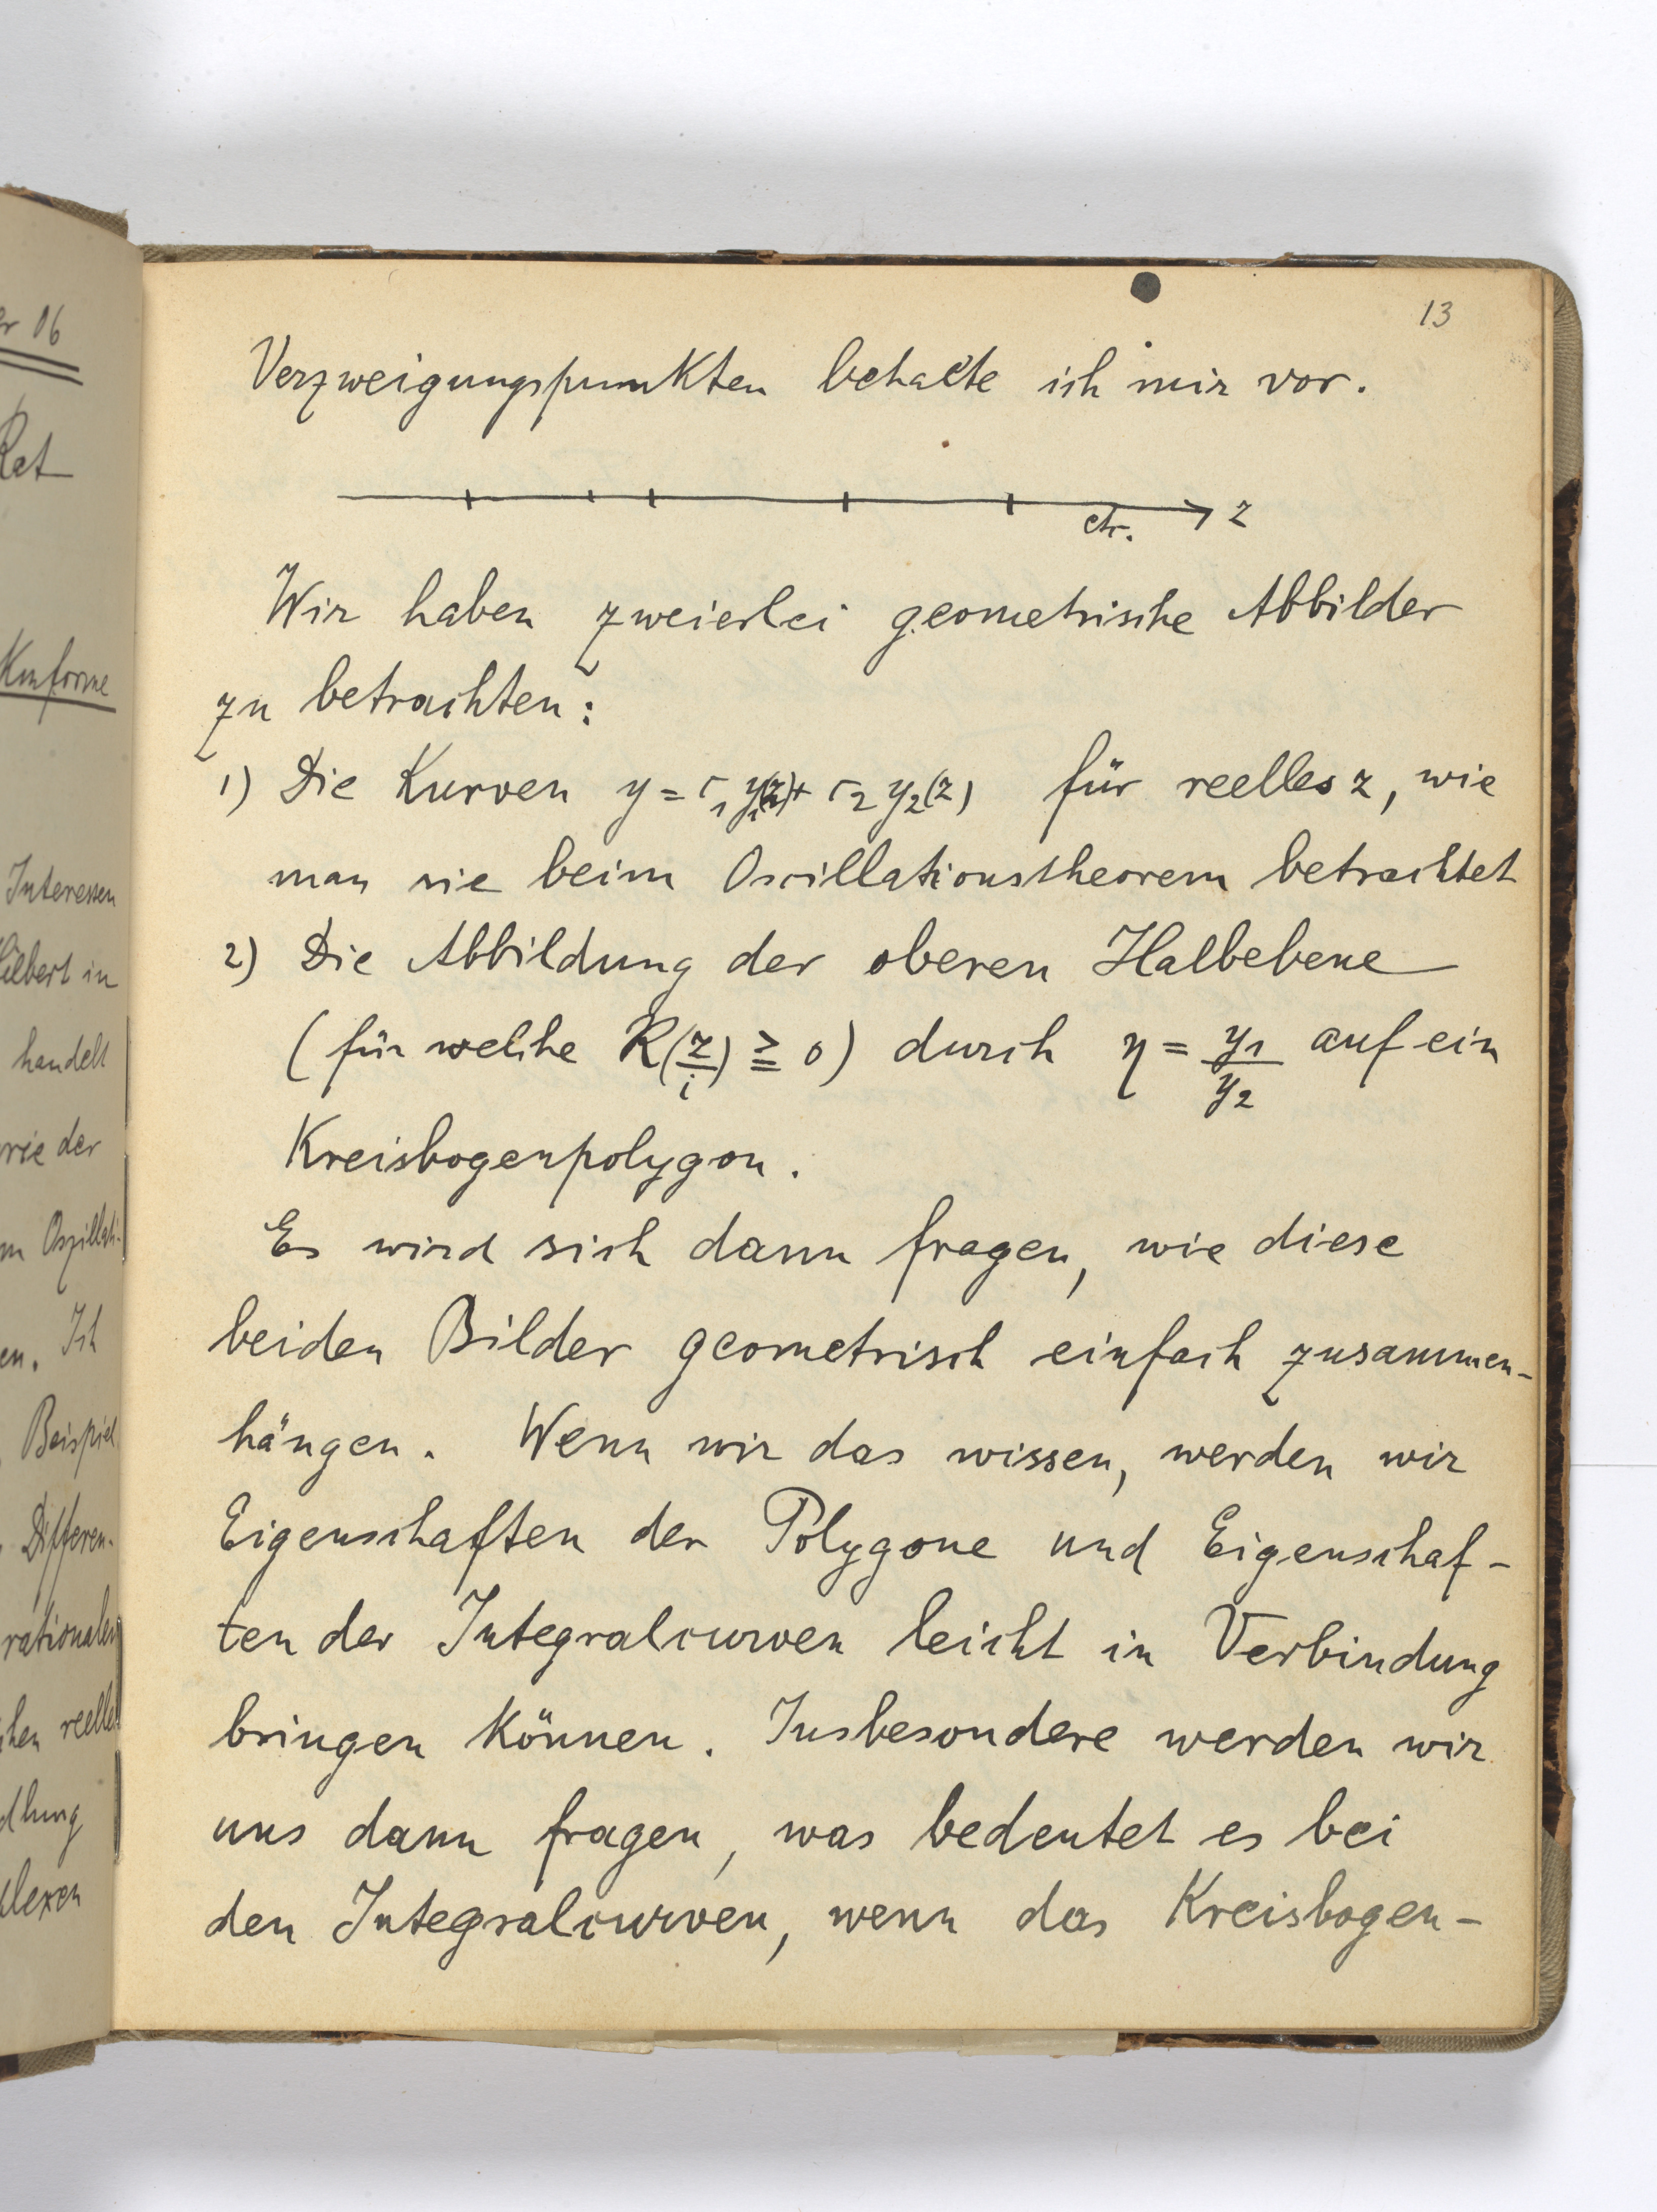 13
Verzweigungspunkten behalte ich mir vor.
etc. z
Wir haben zweierlei geometrische Abbilder
zu betrachten:
1) Die Kurven y = c₁ y₁(z) + c₂ y₂(z) für reelles z, wie
man sie beim Oscillationstheorem betrachtet
2) Die Abbildung der oberen Halbebene
(für welche R(z/i) ≧ 0) durch η = y₁/y₂ auf ein
Kreisbogenpolygon.
Es wird sich dann fragen, wie diese
beiden Bilder geometrisch einfach zusammen-
hängen. Wenn wir das wissen, werden wir
Eigenschaften der Polygone und Eigenschaf-
ten der Integralcurven leicht in Verbindung
bringen können. Insbesondere werden wir
uns dann fragen, was bedeutet es bei
den Integralcurven, wenn das Kreisbogen-
06
Rat
Konforme
Interessen
Hilbert in
handelt
der
Ich
Beispiel
Differen-
rationalen